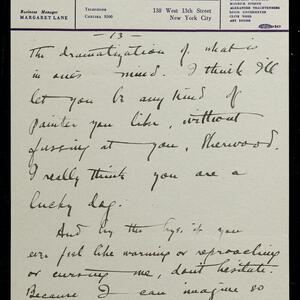 Business Manager
MARGARET LANE
TELEPHONE
CHELSEA
138 West 13th Street
New York City
MAURICE STERNE
ALEXANDER TRACHTENBERG
LOUIS UNTERMEYER
CLEMENT WOOD
ART YOUNG
- 13 -
The dramatization of what is
in one's mind. I think I'll
let you be any kind of
painter you like, without
fussing at you, Sherwood.
I really think you are a
lucky dog.
And by the bye, if you
ever feel like warning or reproaching
or cursing me, don't hesitate.
Because I can imagine so